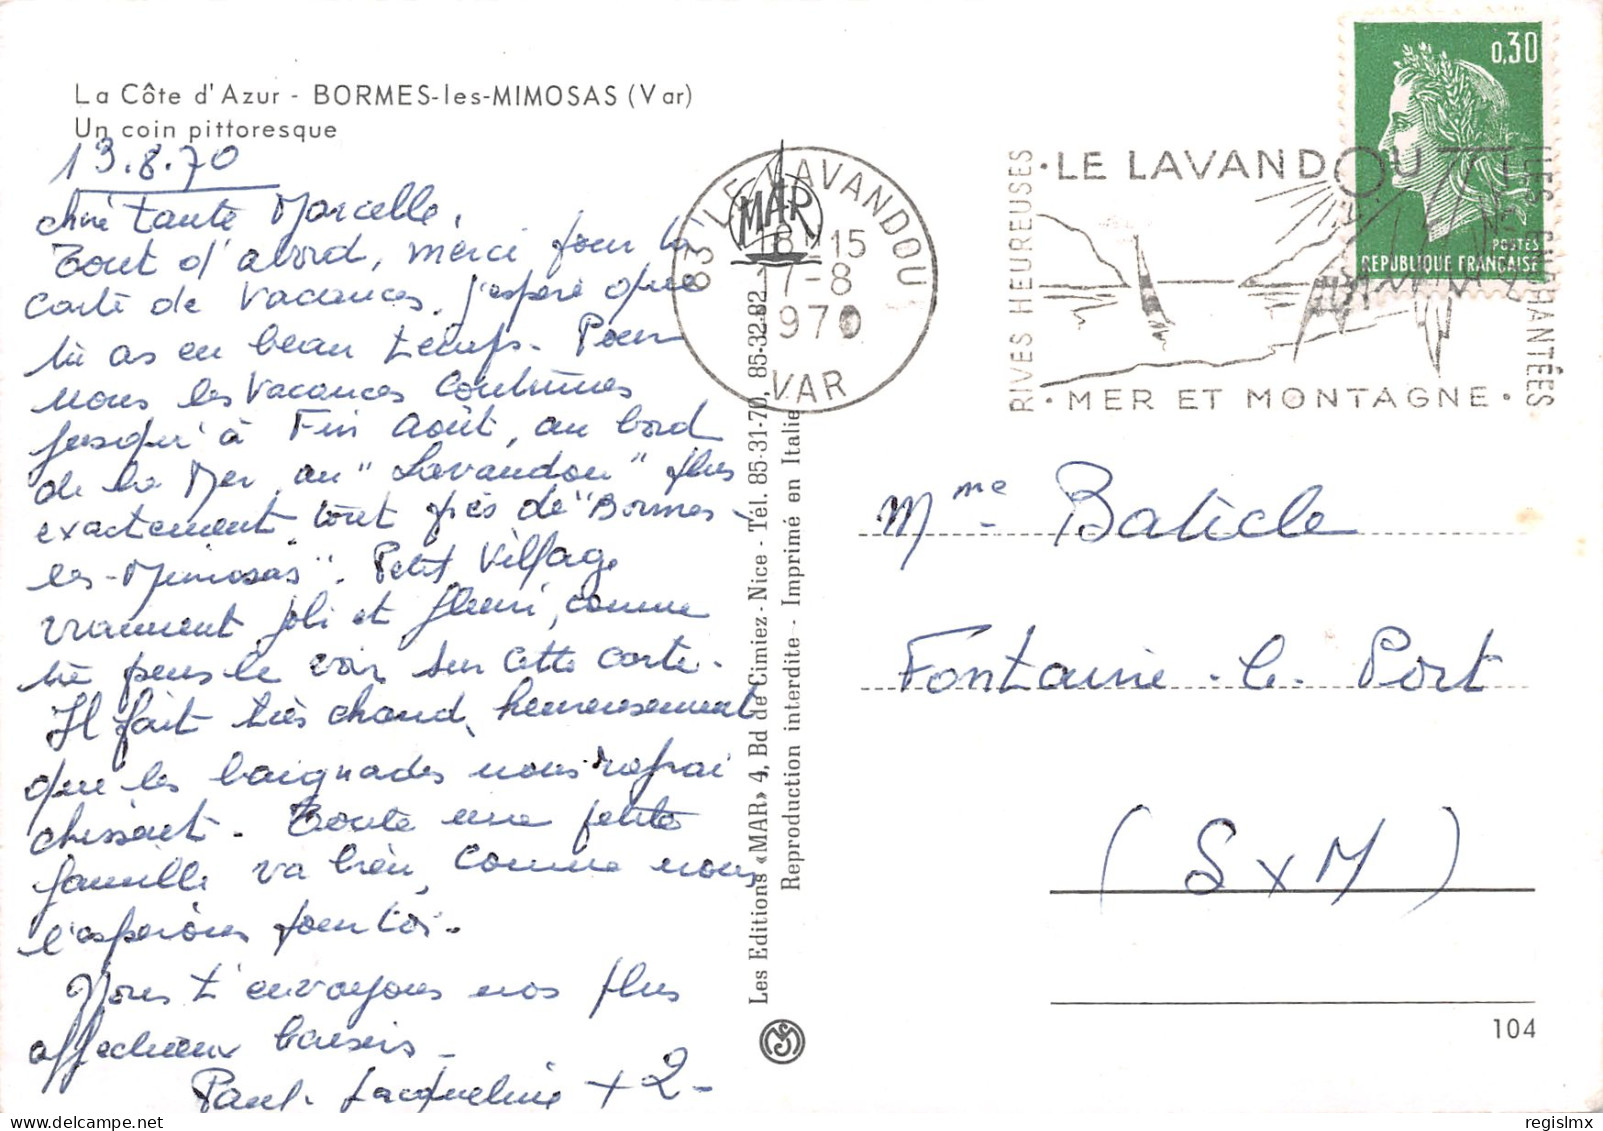 La Côte d'Azur - BORMES-les-MIMOSAS (Var)
Un coin pittoresque
13.8.70
chère tante Marcelle,
Tout d'abord, merci pour la
carte de vacances. j'espère que
tu as eu beau temps. Pour
nous les vacances continues
jusqu'à Fin Août, au bord
de la Mer, au "Lavandou" plus
exactement tout près de "Bormes-
les-Mimosas". Petit Village
vraiment joli et fleuri, comme
tu peus le voir sur cette carte.
Il fait très chaud, heureusement
que les baignades nous rafrai
chissent. Toute une petite
famille va bien, comme nous
l'espérons pour toi.
Nous t'envoyons nos plus
affectueux baisers -
Paul. Jacqueline + 2-
Les Editions «MAR» 4, Bd de Cimiez - Nice - Tél. 85-31-70, 85-32-82
Reproduction interdite - Imprimé en Italie
MAR
83 LE LAVANDOU
18H15
17-8
1970
VAR
RIVES HEUREUSES
• LE LAVANDOU
• MER ET MONTAGNE •
ILES ENCHANTÉES
0,30
POSTES
REPUBLIQUE FRANÇAISE
Mme Baticle
Fontaine-le-Port
(S x M)
104
regislmx